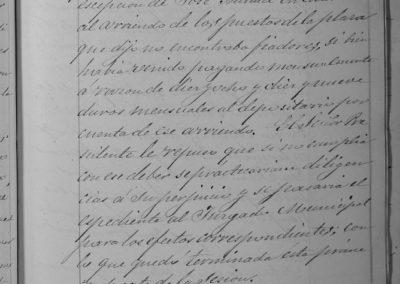 escepcion de José
al arriendo de los puestos de la plaza
que dijo no encontraba fiadores, si bien
habia venido pagando mensualmente
a razon de diez y ocho y diez y nueve
duros mensuales al depositario por
cuenta de ese arriendo. El Señor Pre
sidente le repuso que si no cumplia
con ese deber se practicarian diligen
cias á su perjuicio y se pasaria el
espediente al Juzgado Municipal
para los efectos correspondientes; con
lo que quedó terminada esta prime
parte de la sesion.